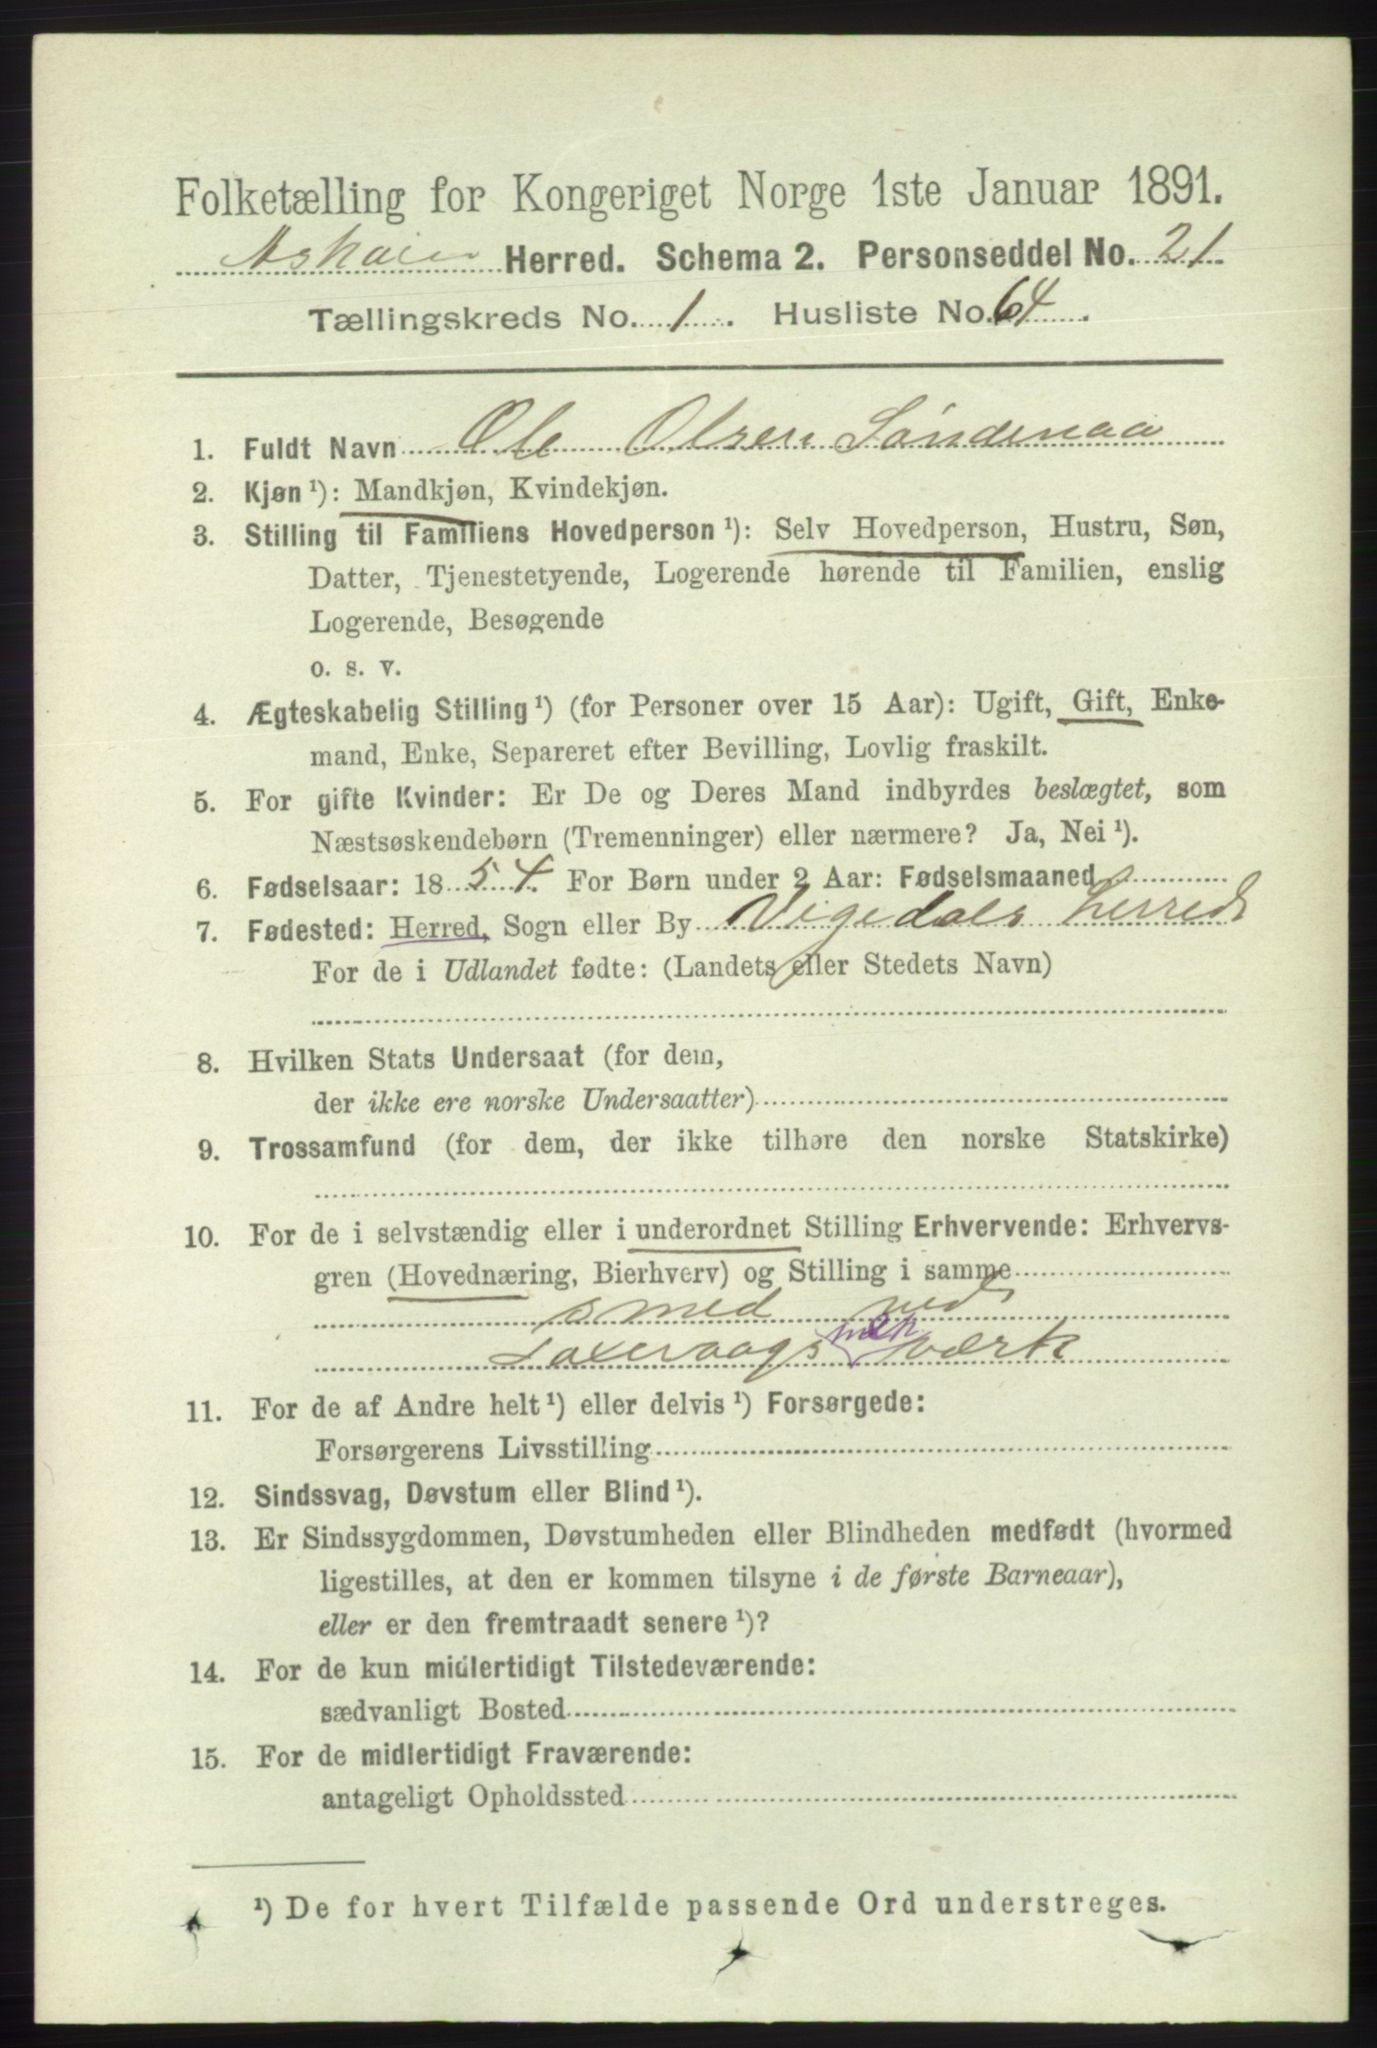 Folketælling for Kongeriget Norge 1ste Januar 1891.
Askøen Herred. Schema 2. Personseddel No. 21
Tællingskreds No. 1. Husliste No. 64.
1. Fuldt Navn Ole Olsen Søndenaa
2. Kjøn ¹): Mandkjøn, Kvindekjøn.
3. Stilling til Familiens Hovedperson ¹): Selv Hovedperson, Hustru, Søn,
Datter, Tjenestetyende, Logerende hørende til Familien, enslig
Logerende, Besøgende
o. s. v.
4. Ægteskabelig Stilling ¹) (for Personer over 15 Aar): Ugift, Gift, Enke-
mand, Enke, Separeret efter Bevilling, Lovlig fraskilt.
5. For gifte Kvinder: Er De og Deres Mand indbyrdes beslægtet, som
Næstsøskendebørn (Tremenninger) eller nærmere? Ja, Nei ¹).
6. Fødselsaar: 1854. For Børn under 2 Aar: Fødselsmaaned
7. Fødested: Herred, Sogn eller By Vigedals Herred
For de i Udlandet fødte: (Landets eller Stedets Navn)
8. Hvilken Stats Undersaat (for dem,
der ikke ere norske Undersaatter)
9. Trossamfund (for dem, der ikke tilhøre den norske Statskirke)
10. For de i selvstændig eller i underordnet Stilling Erhvervende: Erhvervs-
gren (Hovednæring, Bierhverv) og Stilling i samme
smed ved
Laxevaags mek værk
11. For de af Andre helt ¹) eller delvis ¹) Forsørgede:
Forsørgerens Livsstilling
12. Sindssvag, Døvstum eller Blind ¹).
13. Er Sindssygdommen, Døvstumheden eller Blindheden medfødt (hvormed
ligestilles, at den er kommen tilsyne i de første Barneaar),
eller er den fremtraadt senere ¹)?
14. For de kun midlertidigt Tilstedeværende:
sædvanligt Bosted
15. For de midlertidigt Fraværende:
antageligt Opholdssted
¹) De for hvert Tilfælde passende Ord understreges.